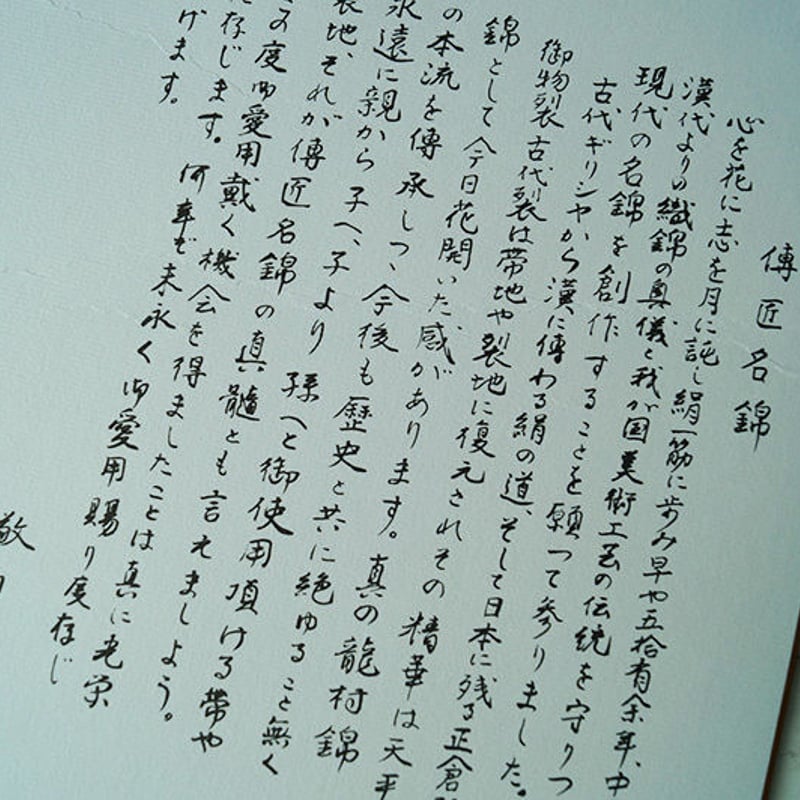 傳匠名錦
心を花に志を月に託し絹一筋に歩み早や五拾有余年、中
漢代よりの織錦の奥儀と我が国美術工芸の伝統を守りつ
現代の名錦を創作することを願つて参りました。
古代ギリシヤから漢に傳わる絹の道、そして日本に残る正倉
御物裂古代裂は帯地や裂地に復元されその精華は天平
錦として今日花開いた感があります。真の龍村錦
の本流を傳承しつゝ今後も歴史と共に絶ゆること無く
永遠に親から子へ、子より孫へと御使用頂ける帯や
裂地、それが傳匠名錦の真髄とも言えましよう。
の度御愛用戴く機会を得ましたことは真に光栄
存じます。何卒末永く御愛用賜り度存じ
げます。
敬